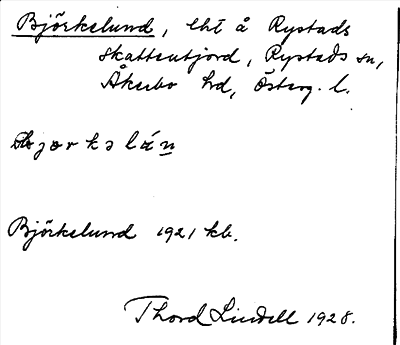 Björkelund, lht å Rystads
skatteutjord, Rystads sn,
Åkerbo hd, Österg. l.
Björkelund 1921 kb.
Thord Lindell 1928.